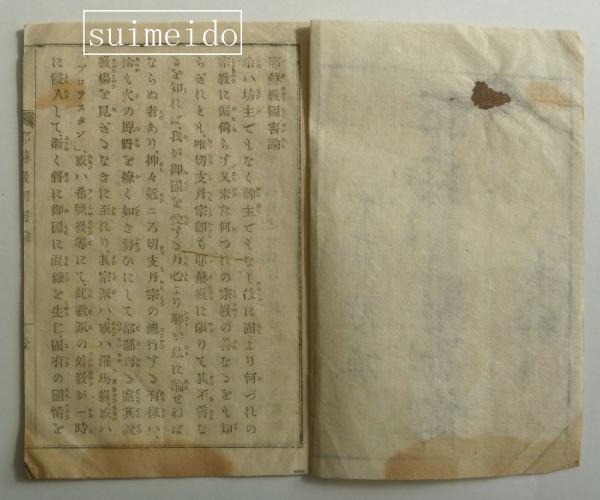 suimeido
耶蘇教國害論
余ハ坊主でもなく神主でもなし故に固より何づれの
宗教に偏倚らず又未た何づれの宗教の善なるをも知
らざれとも唯切支丹宗即ち耶蘇教に限りて其不善な
るを知れば我が御國を愛する丹心より聊か玆に論せねば
ならぬ者あり抑々近ころ切支丹宗の流行する有様ハ、
恰も火の原野を燎く如き勢ひにして都鄙到る處其説
教場を見ざるなきに至れり、其宗派ハ、或ハ羅馬教或ハ
「プロテスタン」、或ハ希臘教等にて、此數派の外教が一時
に侵入して、漸く將に御國に混雑を生じ、固有の國情を
耶蘇教國害論